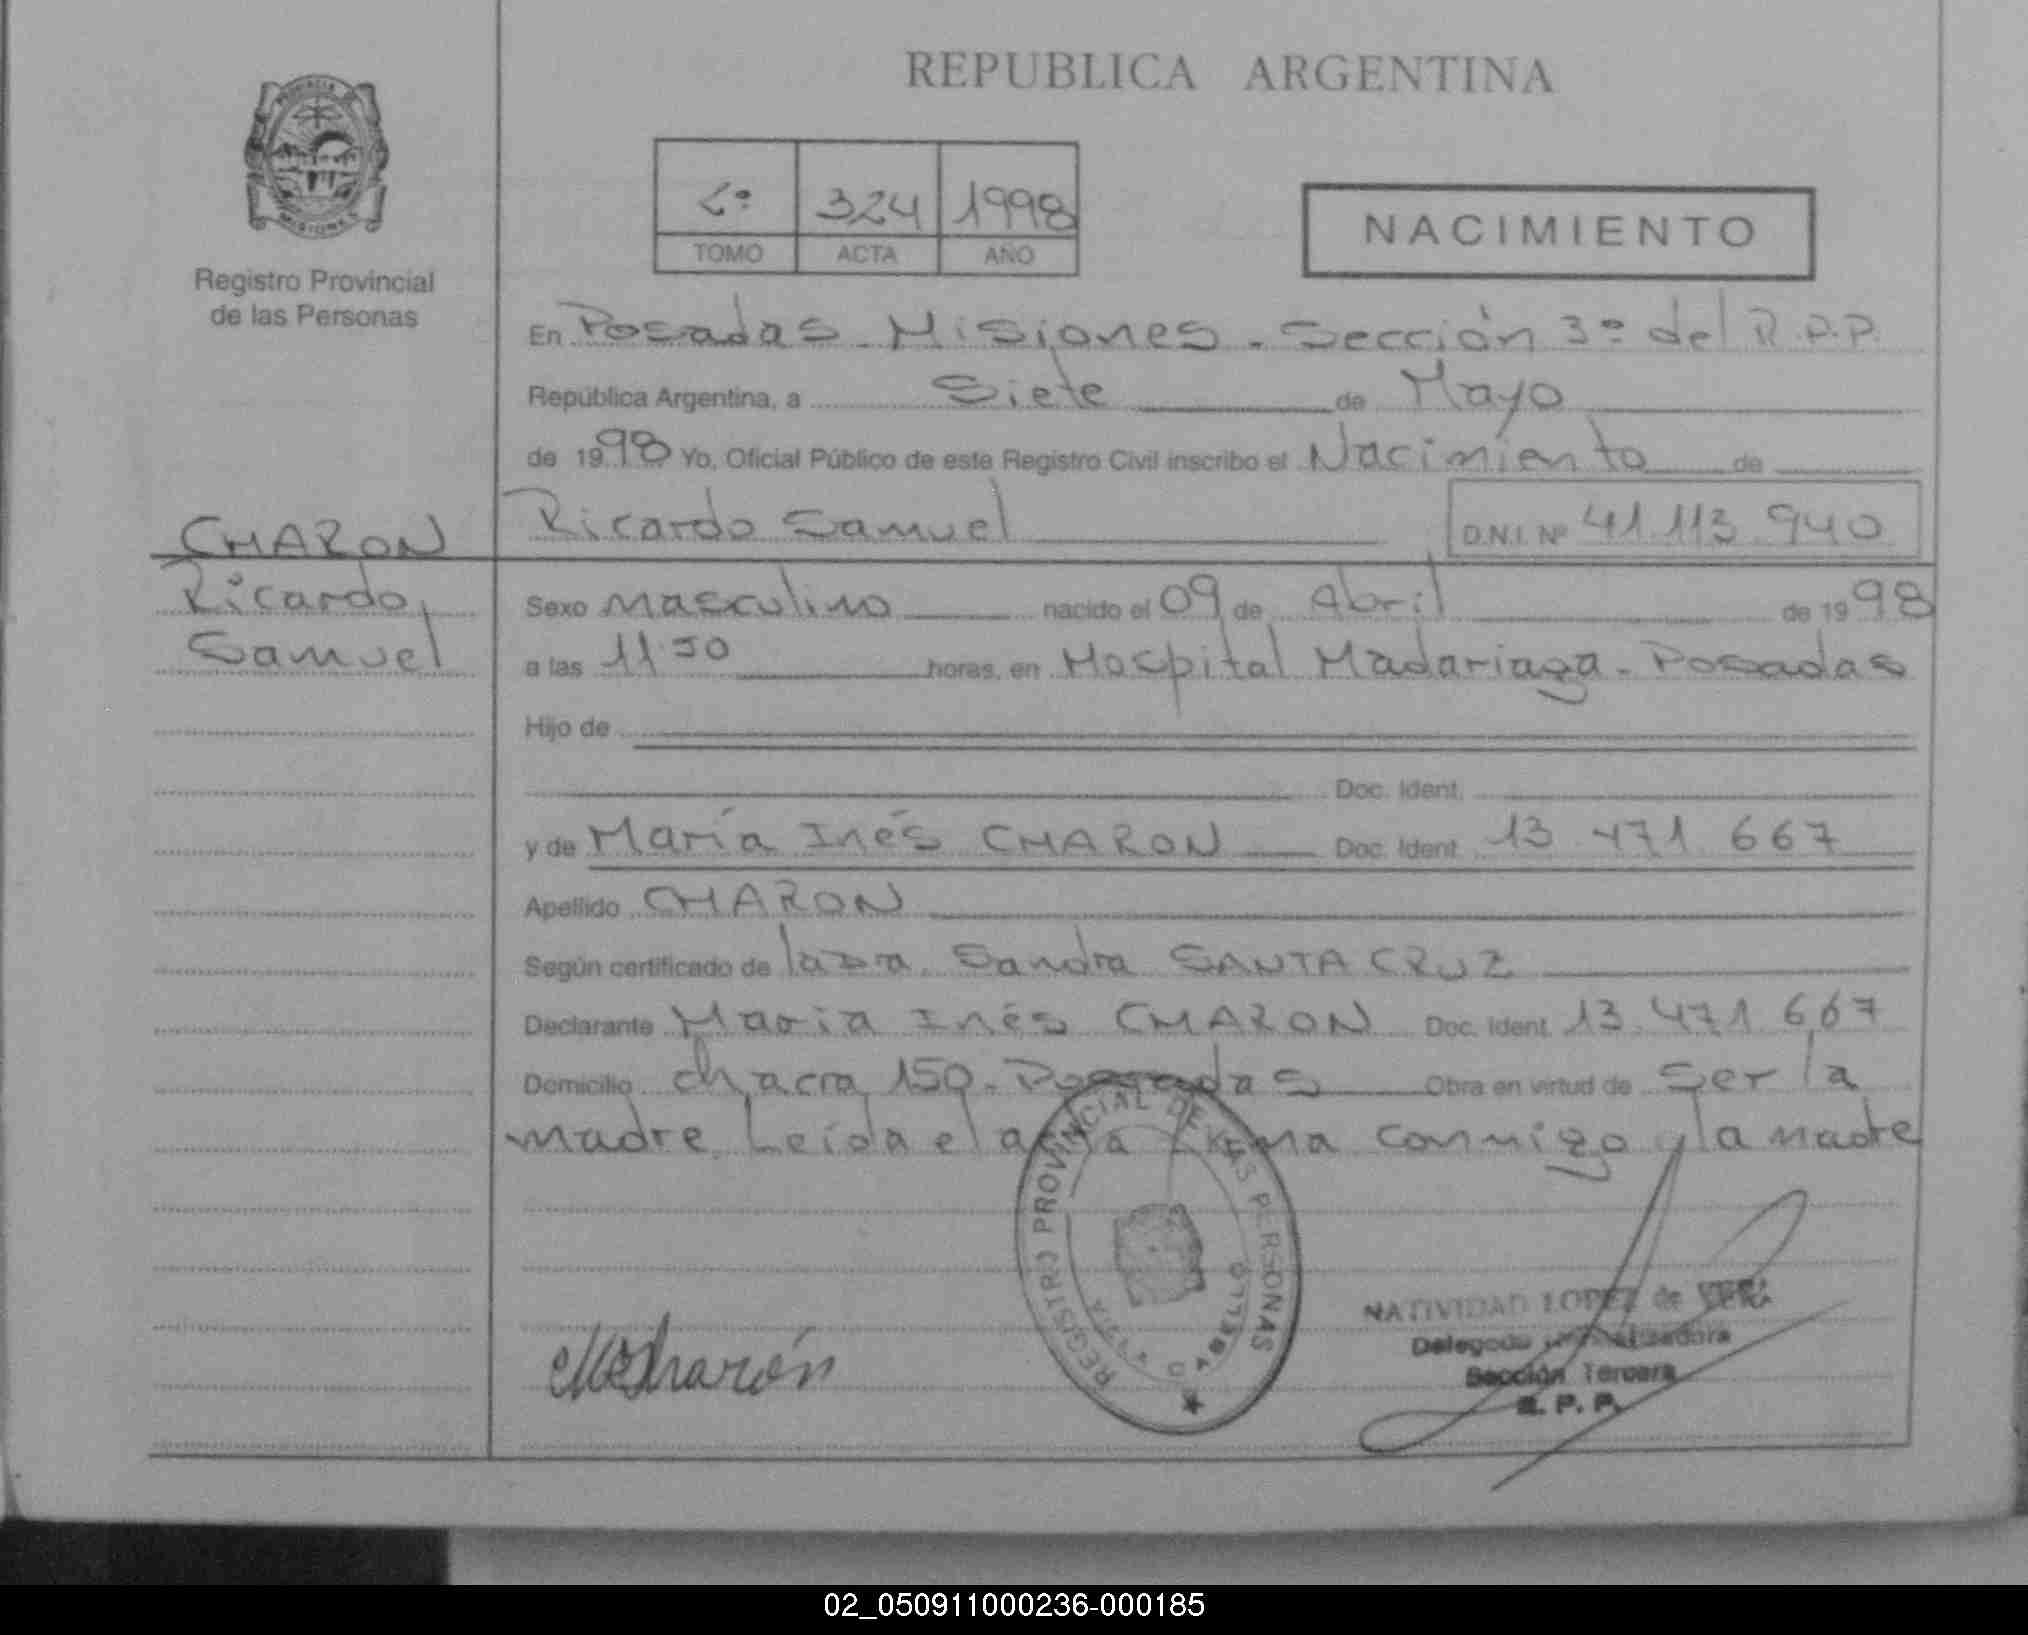 REPUBLICA ARGENTINA
PROVINCIA DE
MISIONES
Registro Provincial
de las Personas
2º 324 1998
TOMO ACTA AÑO
NACIMIENTO
En Posadas - Misiones - Sección 3º del R.P.P.
República Argentina, a Siete de Mayo
de 1998 Yo, Oficial Público de este Registro Civil inscribo el Nacimiento de
CHARON
Ricardo Samuel D.N.I. Nº 41.113.940
Ricardo,
Samuel
Sexo masculino nacido el 09 de Abril de 1998
a las 11 50 horas, en Hospital Madariaga - Posadas
Hijo de
Doc. Ident.
y de María Inés CHARON Doc. Ident. 13.471.667
Apellido CHARON
Según certificado de la Dra. Sandra SANTA CRUZ
Declarante María Inés CHARON Doc. Ident. 13.471.667
Domicilio chacra 150 - Posadas Obra en virtud de ser la
madre. Leída el acta firma conmigo y la madre
REGISTRO PROVINCIAL DE LAS PERSONAS
Charón
NATIVIDAD LOPEZ de VERA
Delegada
Sección Tercera
R. P. P.
02_050911000236-000185